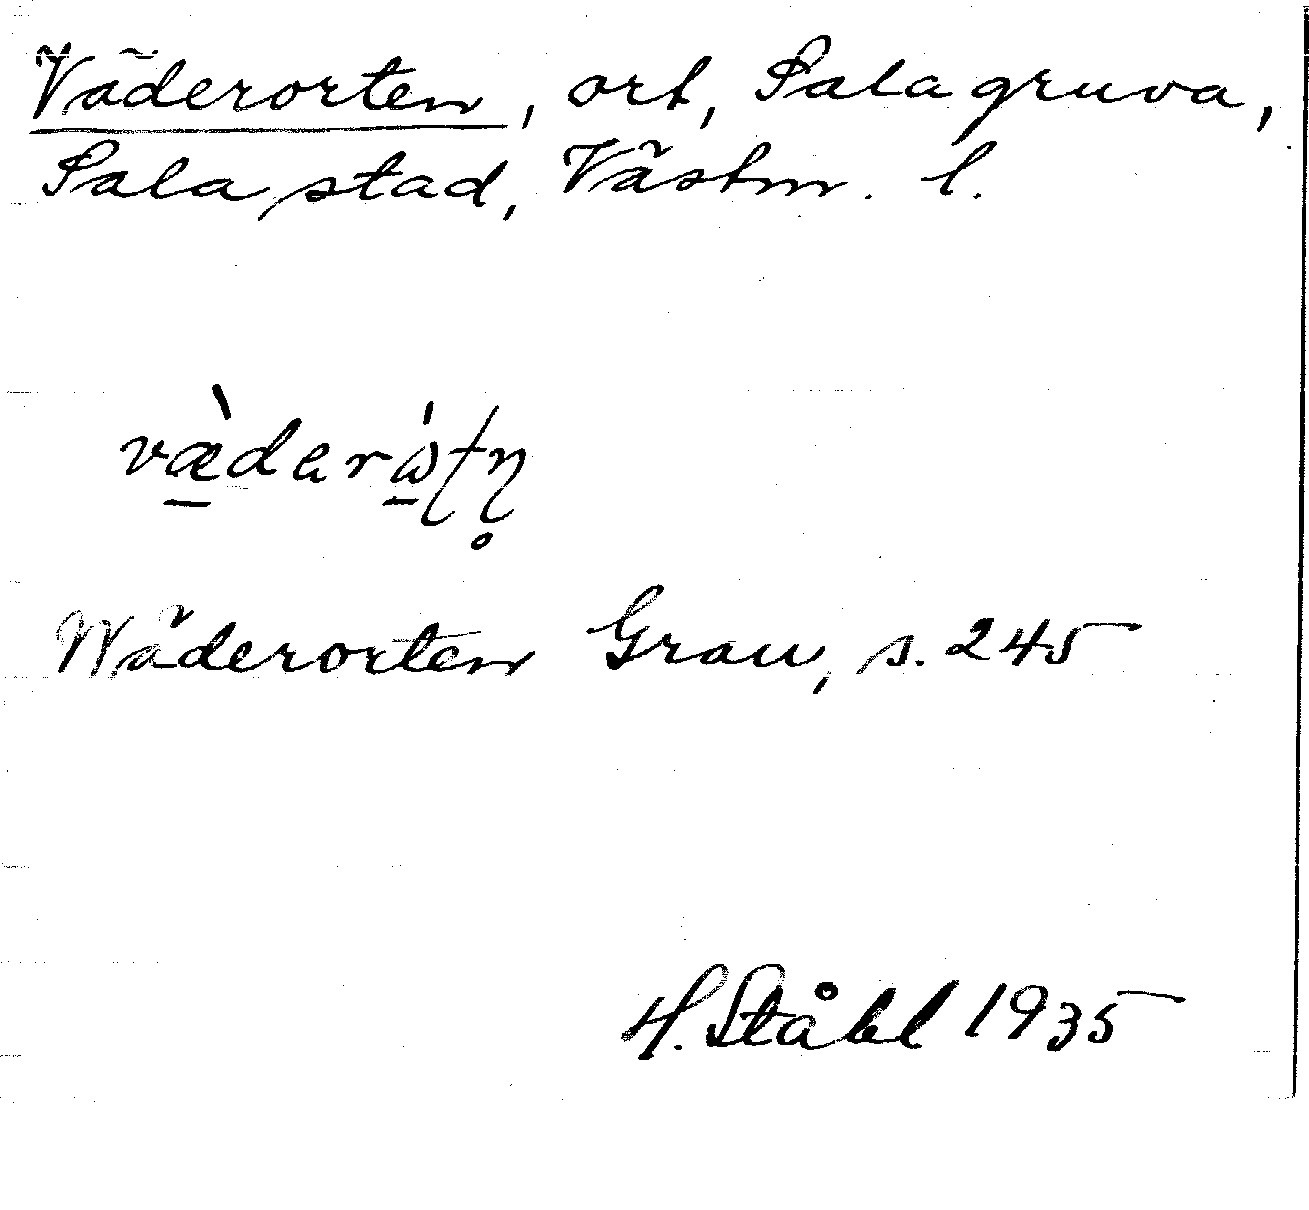 Väderorten, ort, Sala gruva,
Sala stad, Västm. l.
væ̀derὼʈɳ̥
Wäderorten Grau, s. 245
H. Ståhl 1935